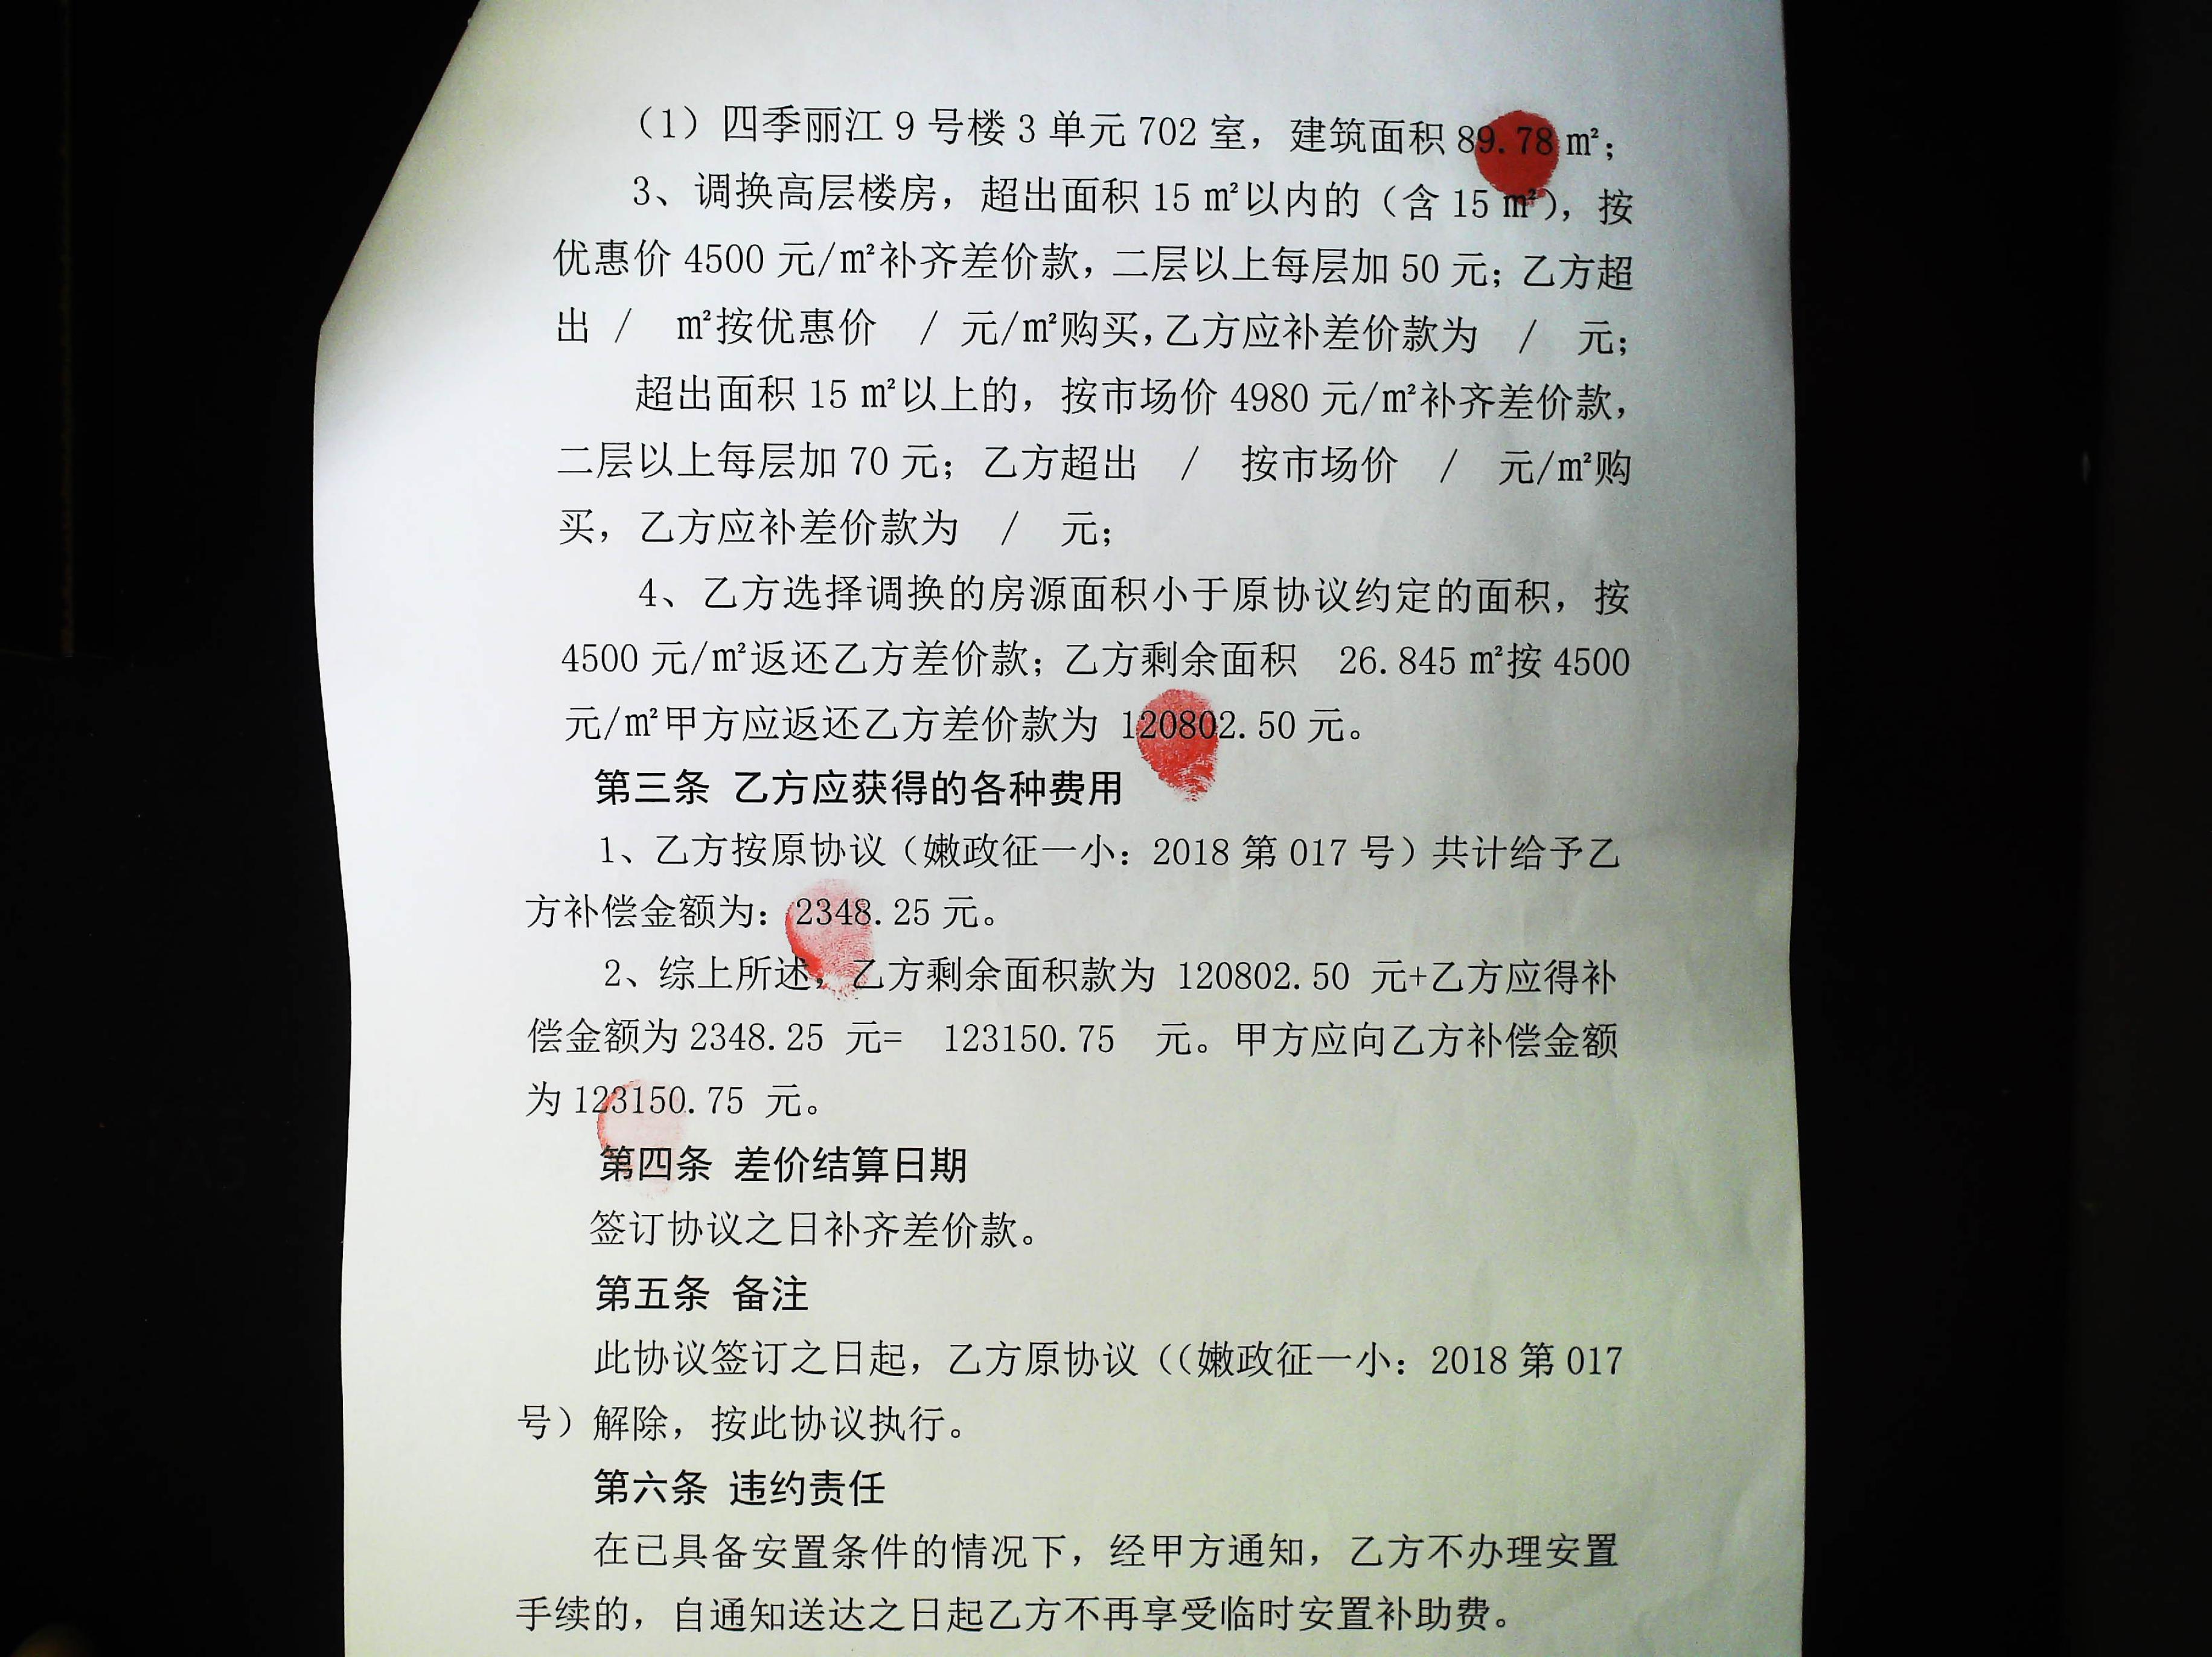 （1）四季丽江9号楼3单元702室，建筑面积89.78㎡；
3、调换高层楼房，超出面积15㎡以内的（含15㎡），按
优惠价4500元/㎡补齐差价款，二层以上每层加50元；乙方超
出 / ㎡按优惠价 / 元/㎡购买，乙方应补差价款为 / 元；
超出面积15㎡以上的，按市场价4980元/㎡补齐差价款，
二层以上每层加70元；乙方超出 / 按市场价 / 元/㎡购
买，乙方应补差价款为 / 元；
4、乙方选择调换的房源面积小于原协议约定的面积，按
4500元/㎡返还乙方差价款；乙方剩余面积 26.845㎡按4500
元/㎡甲方应返还乙方差价款为 120802.50元。
第三条 乙方应获得的各种费用
1、乙方按原协议（嫩政征一小：2018第017号）共计给予乙
方补偿金额为：2348.25元。
2、综上所述，乙方剩余面积款为 120802.50 元+乙方应得补
偿金额为2348.25 元= 123150.75 元。甲方应向乙方补偿金额
为123150.75 元。
第四条 差价结算日期
签订协议之日补齐差价款。
第五条 备注
此协议签订之日起，乙方原协议（（嫩政征一小：2018第017
号）解除，按此协议执行。
第六条 违约责任
在已具备安置条件的情况下，经甲方通知，乙方不办理安置
手续的，自通知送达之日起乙方不再享受临时安置补助费。